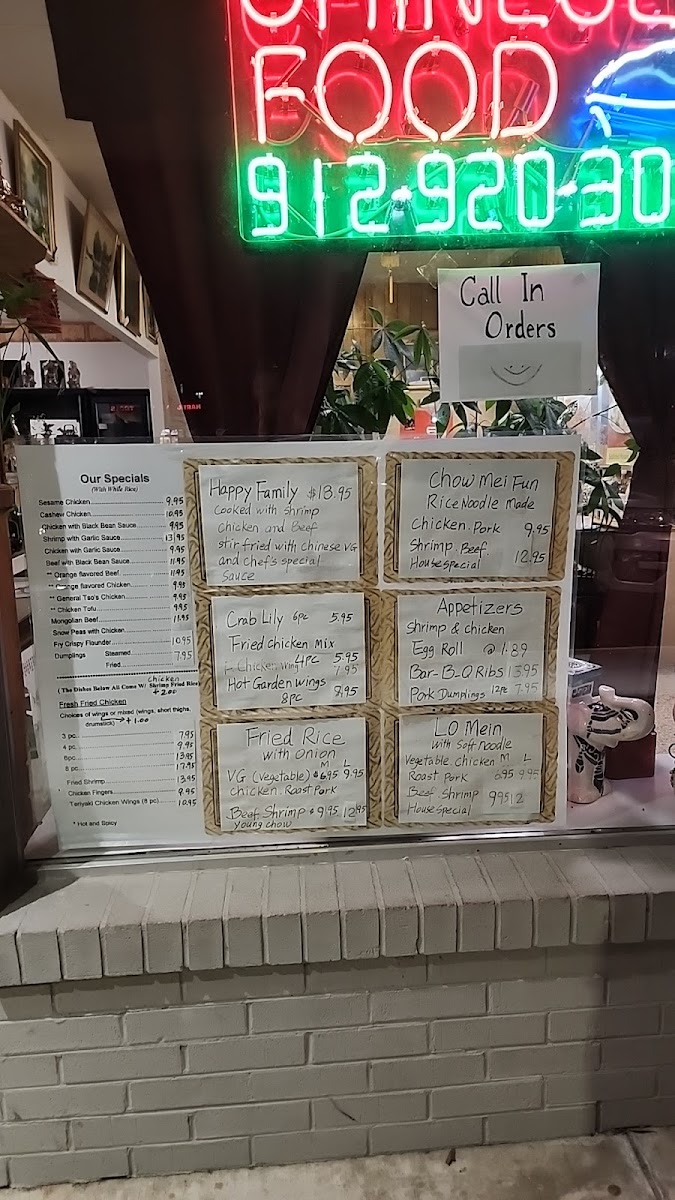 CHINESE
FOOD
912-920-30
Call In
Orders
Our Specials
(With White Rice)
Sesame Chicken 9.95
Cashew Chicken 10.95
Chicken with Black Bean Sauce 9.95
Shrimp with Garlic Sauce 13.95
Chicken with Garlic Sauce 9.95
Beef with Black Bean Sauce 11.95
** Orange flavored Beef 11.95
** Orange flavored Chicken 9.95
** General Tso's Chicken 9.95
** Chicken Tofu 9.95
Mongolian Beef 11.95
Snow Peas with Chicken
Fry Crispy Flounder 10.95
Dumplings Steamed 7.95
Fried
chicken
(The Dishes Below All Come W/ Shrimp Fried Rice)
+2.00
Fresh Fried Chicken
Choices of wings or mixed (wings, short thighs,
drumstick) +1.00
3 pc. 7.95
4 pc. 9.95
6pc. 13.95
8 pc. 17.95
Fried Shrimp 13.95
* Chicken Fingers 9.95
Teriyaki Chicken Wings (8 pc) 10.95
* Hot and Spicy
Happy Family $13.95
Cooked with shrimp
chicken and Beef
stir fried with chinese VG
and chef's special
sauce
Chow Mei Fun
Rice Noodle Made
Chicken. Pork 9.95
Shrimp. Beef
House special 12.95
Crab Lily 6pc 5.95
Fried Chicken Mix
4PC 5.95
Chicken Wing 7.95
Hot Garden wings
8pc 9.95
Appetizers
Shrimp & chicken
Egg Roll @ 1.89
Bar-B-Q Ribs 13.95
Pork Dumplings 12pc 7.95
Fried Rice
with onion
M L
VG (Vegetable) $6.95 9.95
chicken. Roast Pork
Beef. Shrimp $9.95 12.95
Young chow
LO Mein
with Soft noodle
Vegetable. chicken M L
Roast Pork 6.95 9.95
Beef. Shrimp 995 12
House special